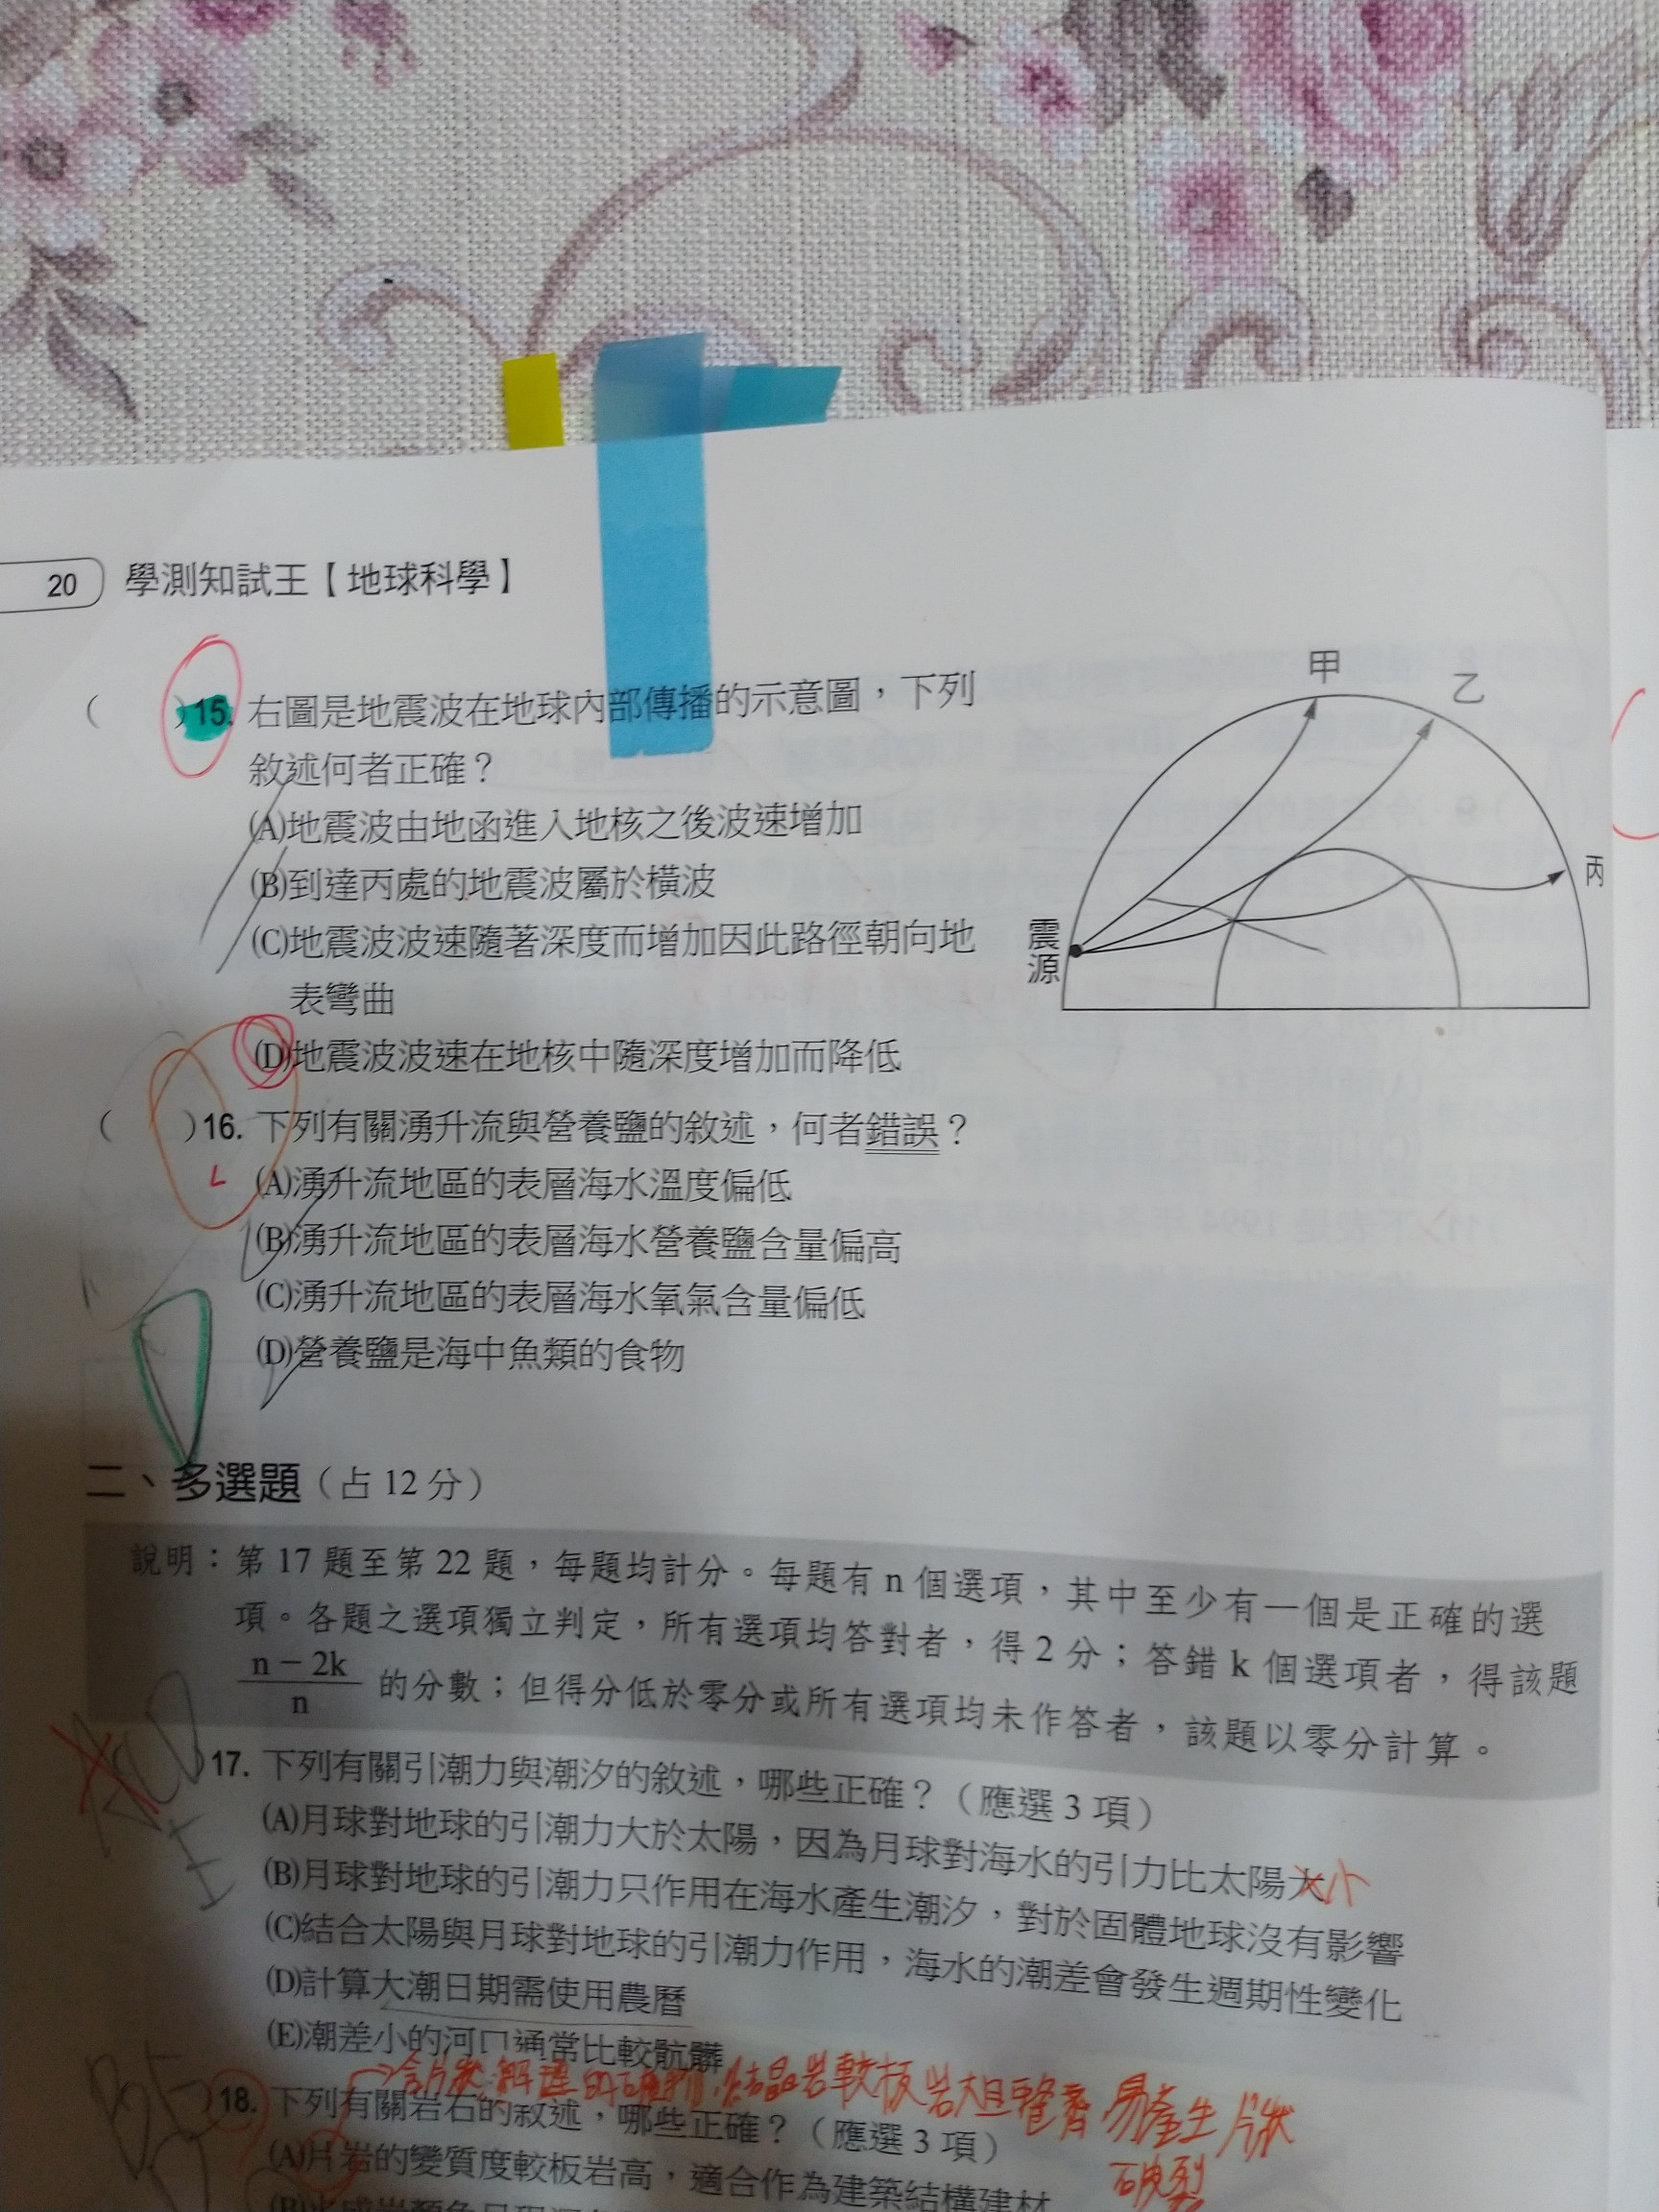 20 學測知試王【地球科學】
( )15. 右圖是地震波在地球內部傳播的示意圖，下列
敘述何者正確？
(A)地震波由地函進入地核之後波速增加
(B)到達丙處的地震波屬於橫波
(C)地震波波速隨著深度而增加因此路徑朝向地
表彎曲
(D)地震波波速在地核中隨深度增加而降低
甲
乙
丙
震源
( )16. 下列有關湧升流與營養鹽的敘述，何者錯誤？
(A)湧升流地區的表層海水溫度偏低
(B)湧升流地區的表層海水營養鹽含量偏高
(C)湧升流地區的表層海水氧氣含量偏低
(D)營養鹽是海中魚類的食物
二、多選題（占 12 分）
說明：第 17 題至第 22 題，每題均計分。每題有 n 個選項，其中至少有一個是正確的選
項。各題之選項獨立判定，所有選項均答對者，得 2 分；答錯 k 個選項者，得該題
n－2k/n 的分數；但得分低於零分或所有選項均未作答者，該題以零分計算。
)17. 下列有關引潮力與潮汐的敘述，哪些正確？（應選 3 項）
(A)月球對地球的引潮力大於太陽，因為月球對海水的引力比太陽大小
(B)月球對地球的引潮力只作用在海水產生潮汐，對於固體地球沒有影響
(C)結合太陽與月球對地球的引潮力作用，海水的潮差會發生週期性變化
(D)計算大潮日期需使用農曆
(E)潮差小的河口通常比較骯髒
易產生片狀
破裂
)18. 下列有關岩石的敘述，哪些正確？（應選 3 項）
(A)片岩的變質度較板岩高，適合作為建築結構建材